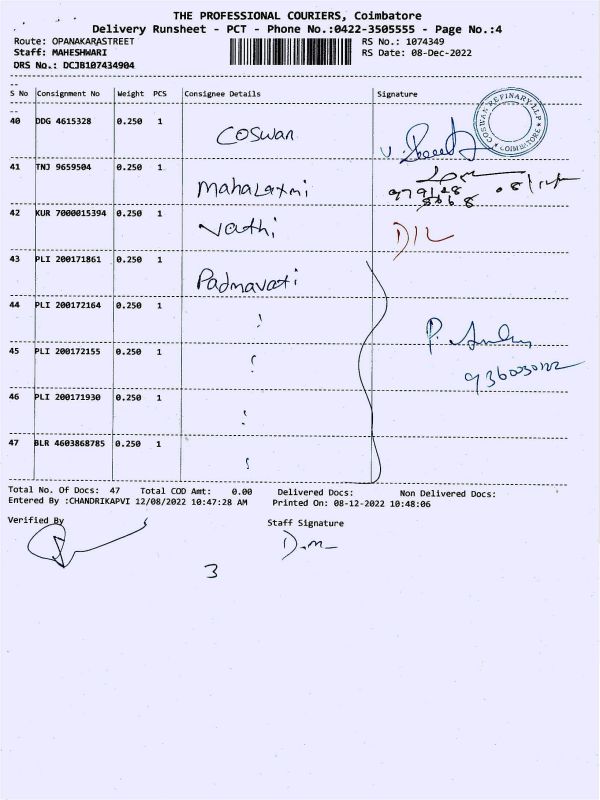 THE PROFESSIONAL COURIERS, Coimbatore
Delivery Runsheet - PCT - Phone No.:0422-3505555 - Page No.:4
Route: OPANAKARASTREET RS No.: 1074349
Staff: MAHESHWARI RS Date: 08-Dec-2022
DRS No.: DCJB107434904
S No Consignment No Weight PCS Consignee Details Signature
40 DDG 4615328 0.250 1 Coswan
COSWAN REFINARY LLP COIMBATORE
41 TNJ 9659504 0.250 1 Mahalaxmi
42 KUR 7000015394 0.250 1 D/L
43 PLI 200171861 0.250 1 Padmavati
44 PLI 200172164 0.250 1
45 PLI 200172155 0.250 1
46 PLI 200171930 0.250 1
47 BLR 4603868785 0.250 1
Total No. Of Docs: 47 Total COD Amt: 0.00 Delivered Docs: Non Delivered Docs:
Entered By :CHANDRIKAPVI 12/08/2022 10:47:28 AM Printed On: 08-12-2022 10:48:06
Verified By Staff Signature
3